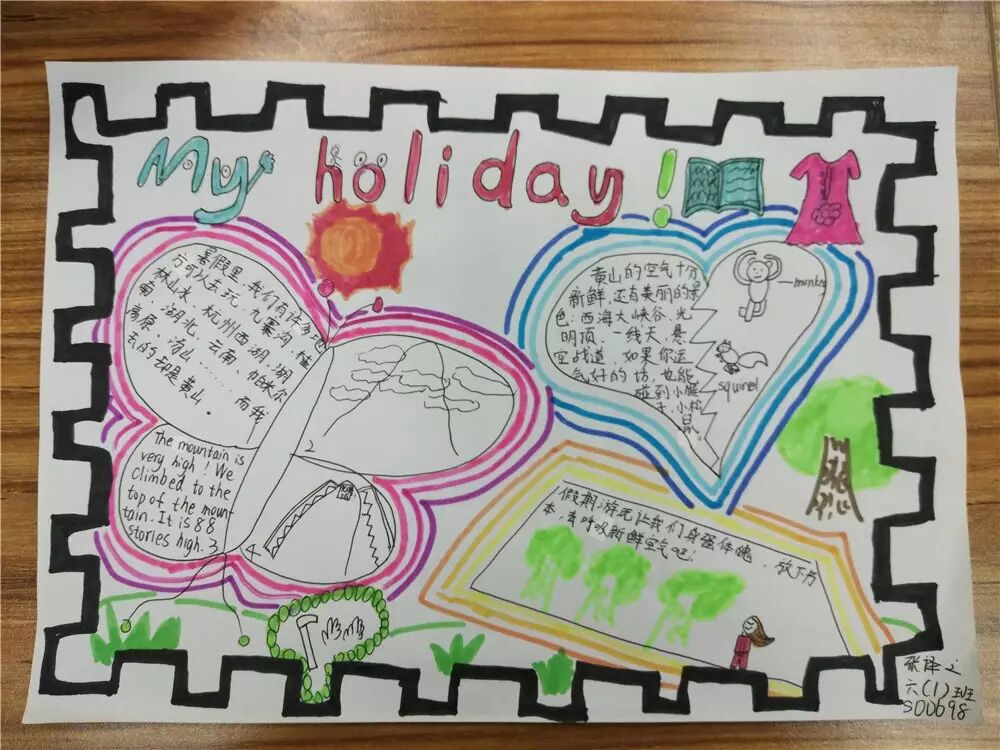 My holiday!
暑假里,我们有许多地
方可以去玩,九寨沟,桂
林山水,杭州西湖,湖
南,湖北,云南,帕米尔
高原,海山………而我
去的却是黄山。
The mountain is
very high! We
climbed to the
top of the moun
tain. It is 88
stories high.
2
3
4
黄山的空气十分
新鲜,还有美丽的景
色:西海大峡谷,光
明顶,一线天,悬
空战道,如果你运
气好的话,也能
碰到小猴
子,小松
鼠。
monkey
squirrel
假期游玩让我们身强体魄,放下书
本,去呼吸新鲜空气吧!
张译
六(1)班
S00698